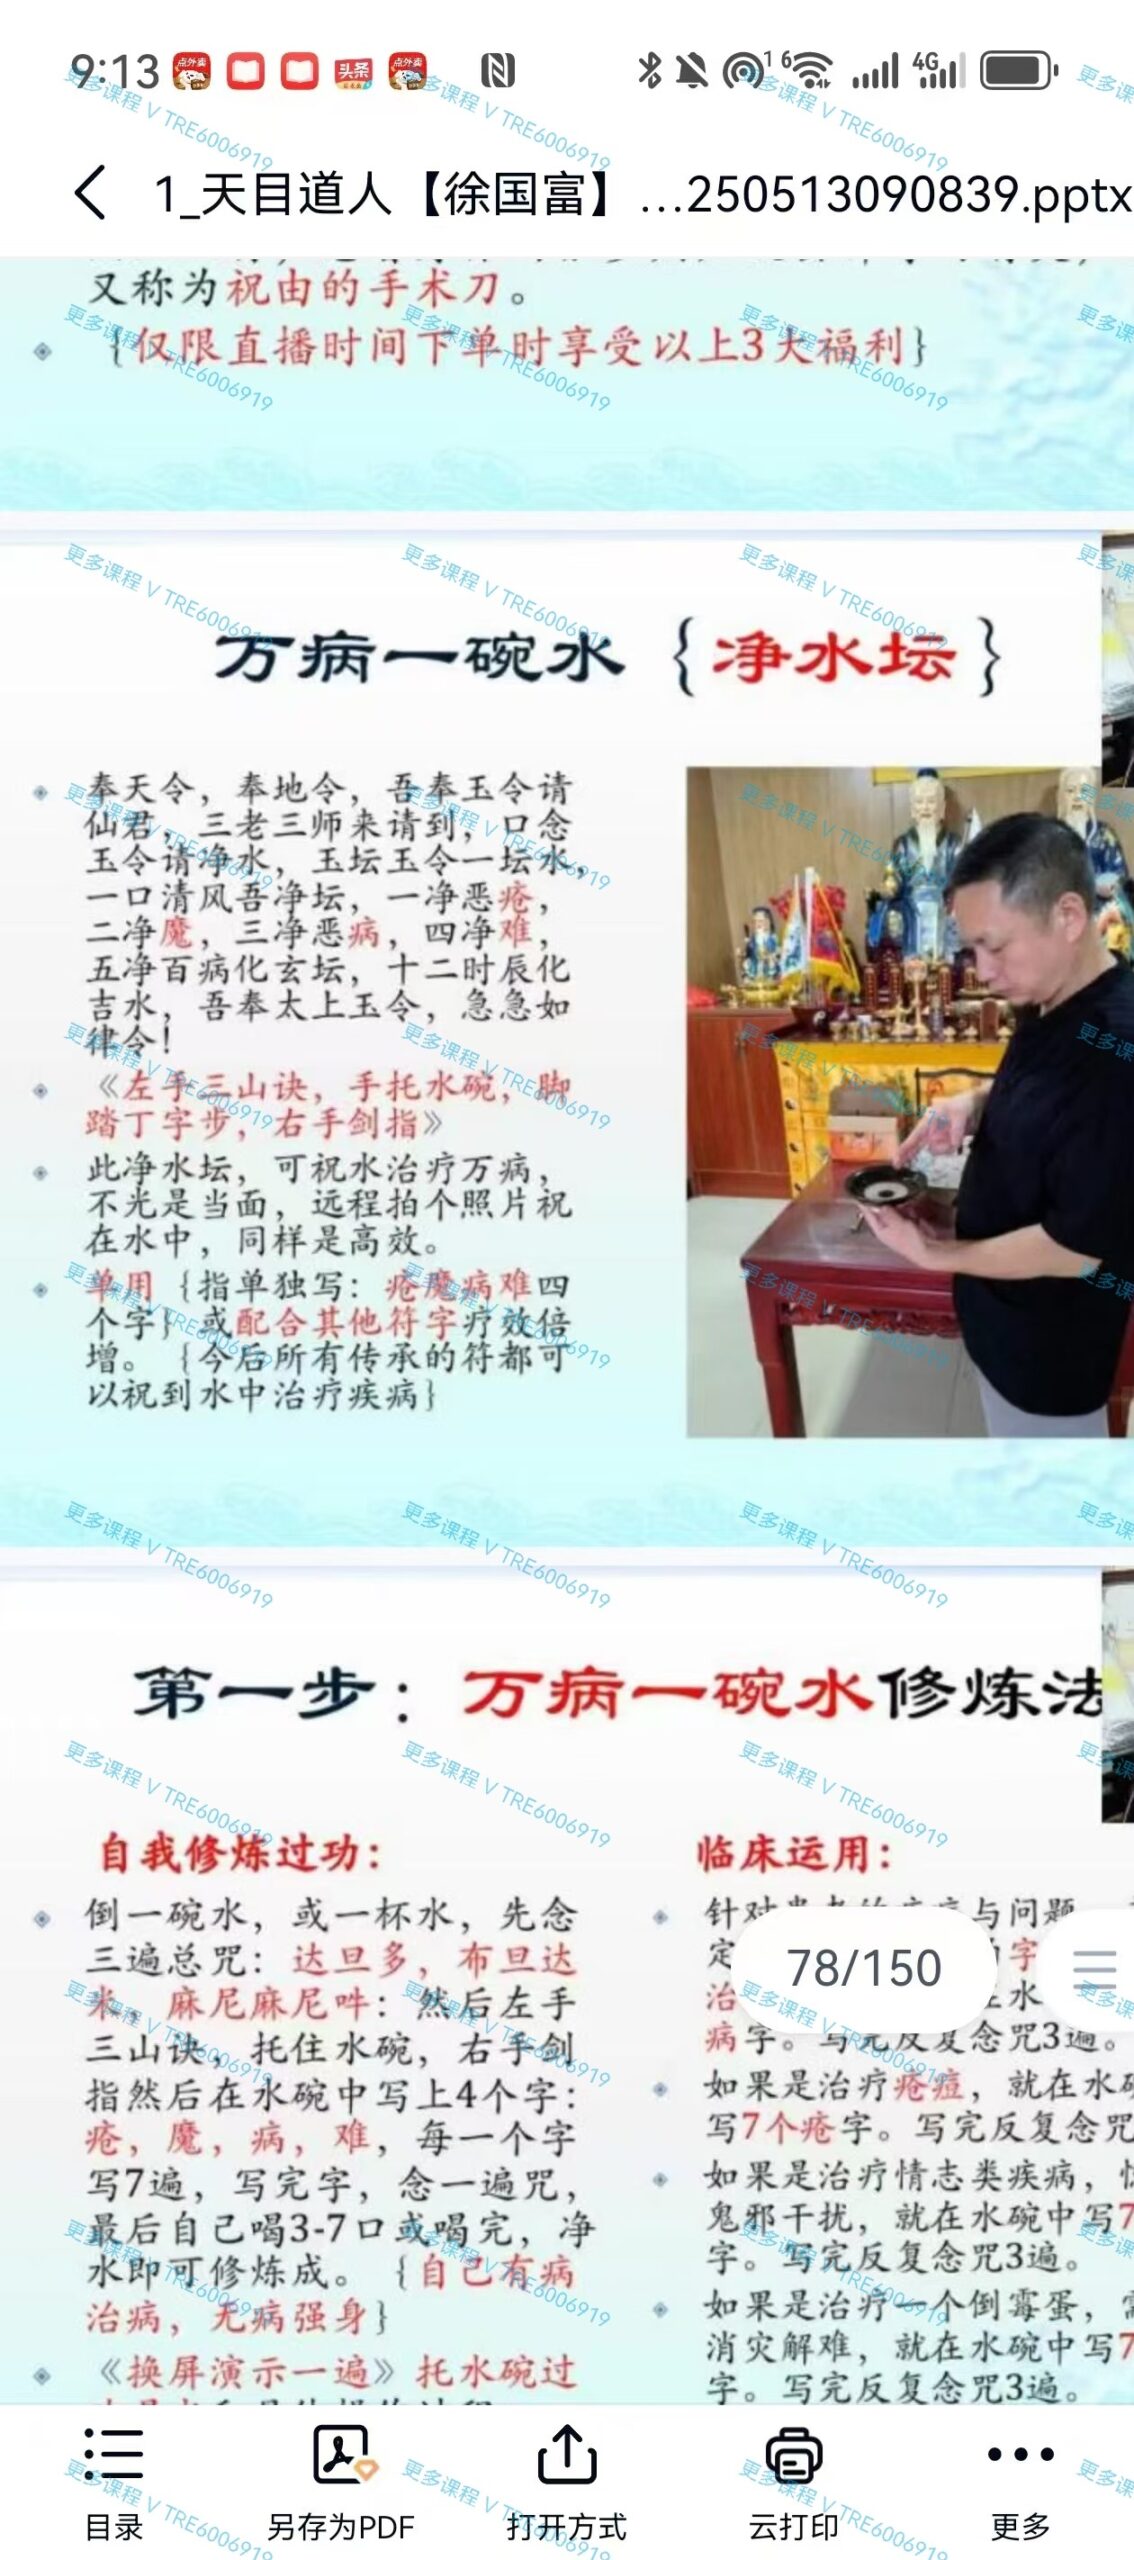 9:13
点外卖
头条
点外卖
1 6
4G
1_天目道人【徐国富】...250513090839.pptx
又称为祝由的手术刀。
{仅限直播时间下单时享受以上3大福利}
万病一碗水{净水坛}
奉天令，奉地令，吾奉玉令请
仙君，三老三师来请到，口念
玉令请净水，玉坛玉令一坛水，
一口清风吾净坛，一净恶疮，
二净魔，三净恶病，四净难，
五净百病化玄坛，十二时辰化
吉水，吾奉太上玉令，急急如
律令！
《左手三山诀，手托水碗，脚
踏丁字步，右手剑指》
此净水坛，可祝水治疗万病，
不光是当面，远程拍个照片祝
在水中，同样是高效。
单用{指单独写：疮魔病难四
个字}或配合其他符字疗效倍
增。{今后所有传承的符都可
以祝到水中治疗疾病}
第一步：万病一碗水修炼法
自我修炼过功：
倒一碗水，或一杯水，先念
三遍总咒：达旦多，布旦达
米，麻尼麻尼吽：然后左手
三山诀，托住水碗，右手剑
指然后在水碗中写上4个字：
疮，魔，病，难，每一个字
写7遍，写完字，念一遍咒，
最后自己喝3-7口或喝完，净
水即可修炼成。{自己有病
治病，无病强身}
《换屏演示一遍》托水碗过
临床运用：
针对患者的疾病与问题
定
字
治
水
病字。写完反复念咒3遍。
如果是治疗疮痘，就在水碗
写7个疮字。写完反复念咒
如果是治疗情志类疾病，
鬼邪干扰，就在水碗中写7
字。写完反复念咒3遍。
如果是治疗一个倒霉蛋，需
消灾解难，就在水碗中写7
字。写完反复念咒3遍。
78/150
目录
另存为PDF
打开方式
云打印
更多
更多课程 V TRE6006919